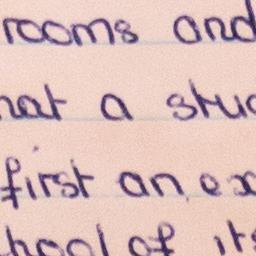 rooms and
hat a stud
first an ex
hool of its